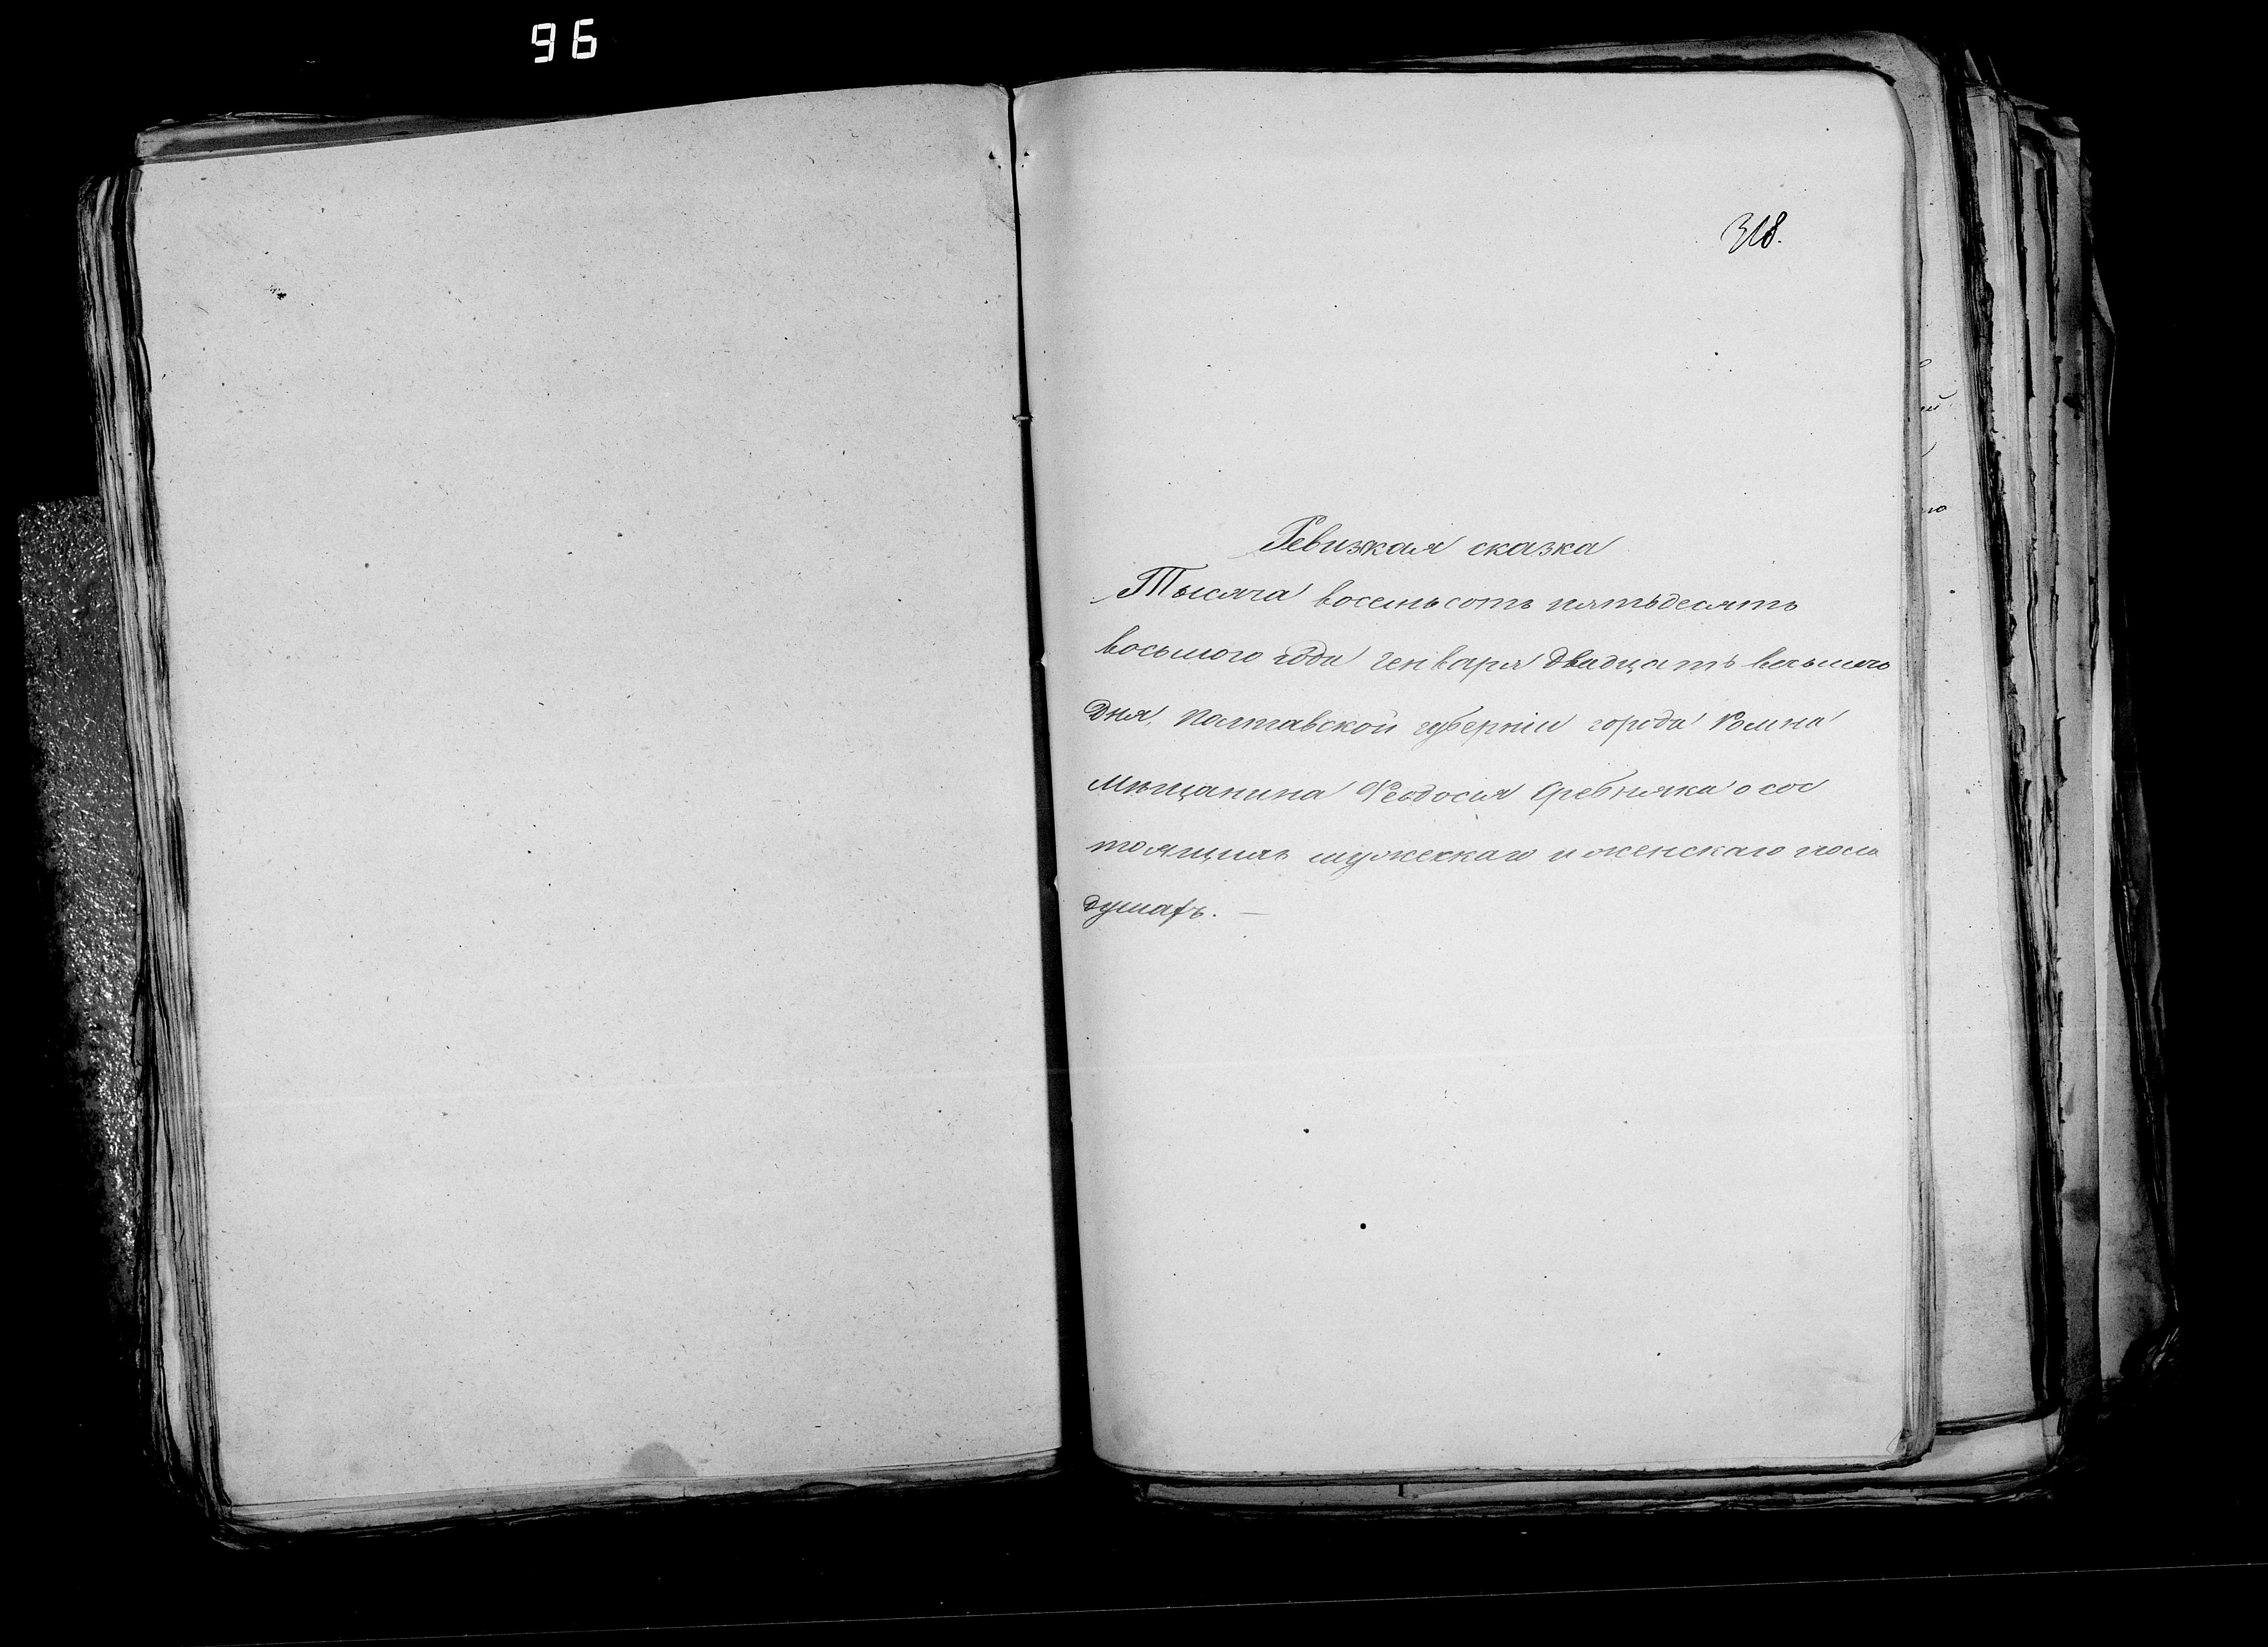 96
318.
Ревизкая сказка
Тысяча восемьсотъ пятьдесятъ
восьмого года генваря двадцать восьмого
дня, Полтавской губерніи города Ромна
Мѣщанина Феодосия Гребняка о сос
тоящихъ мужескаго и женскаго пола
душахъ. —